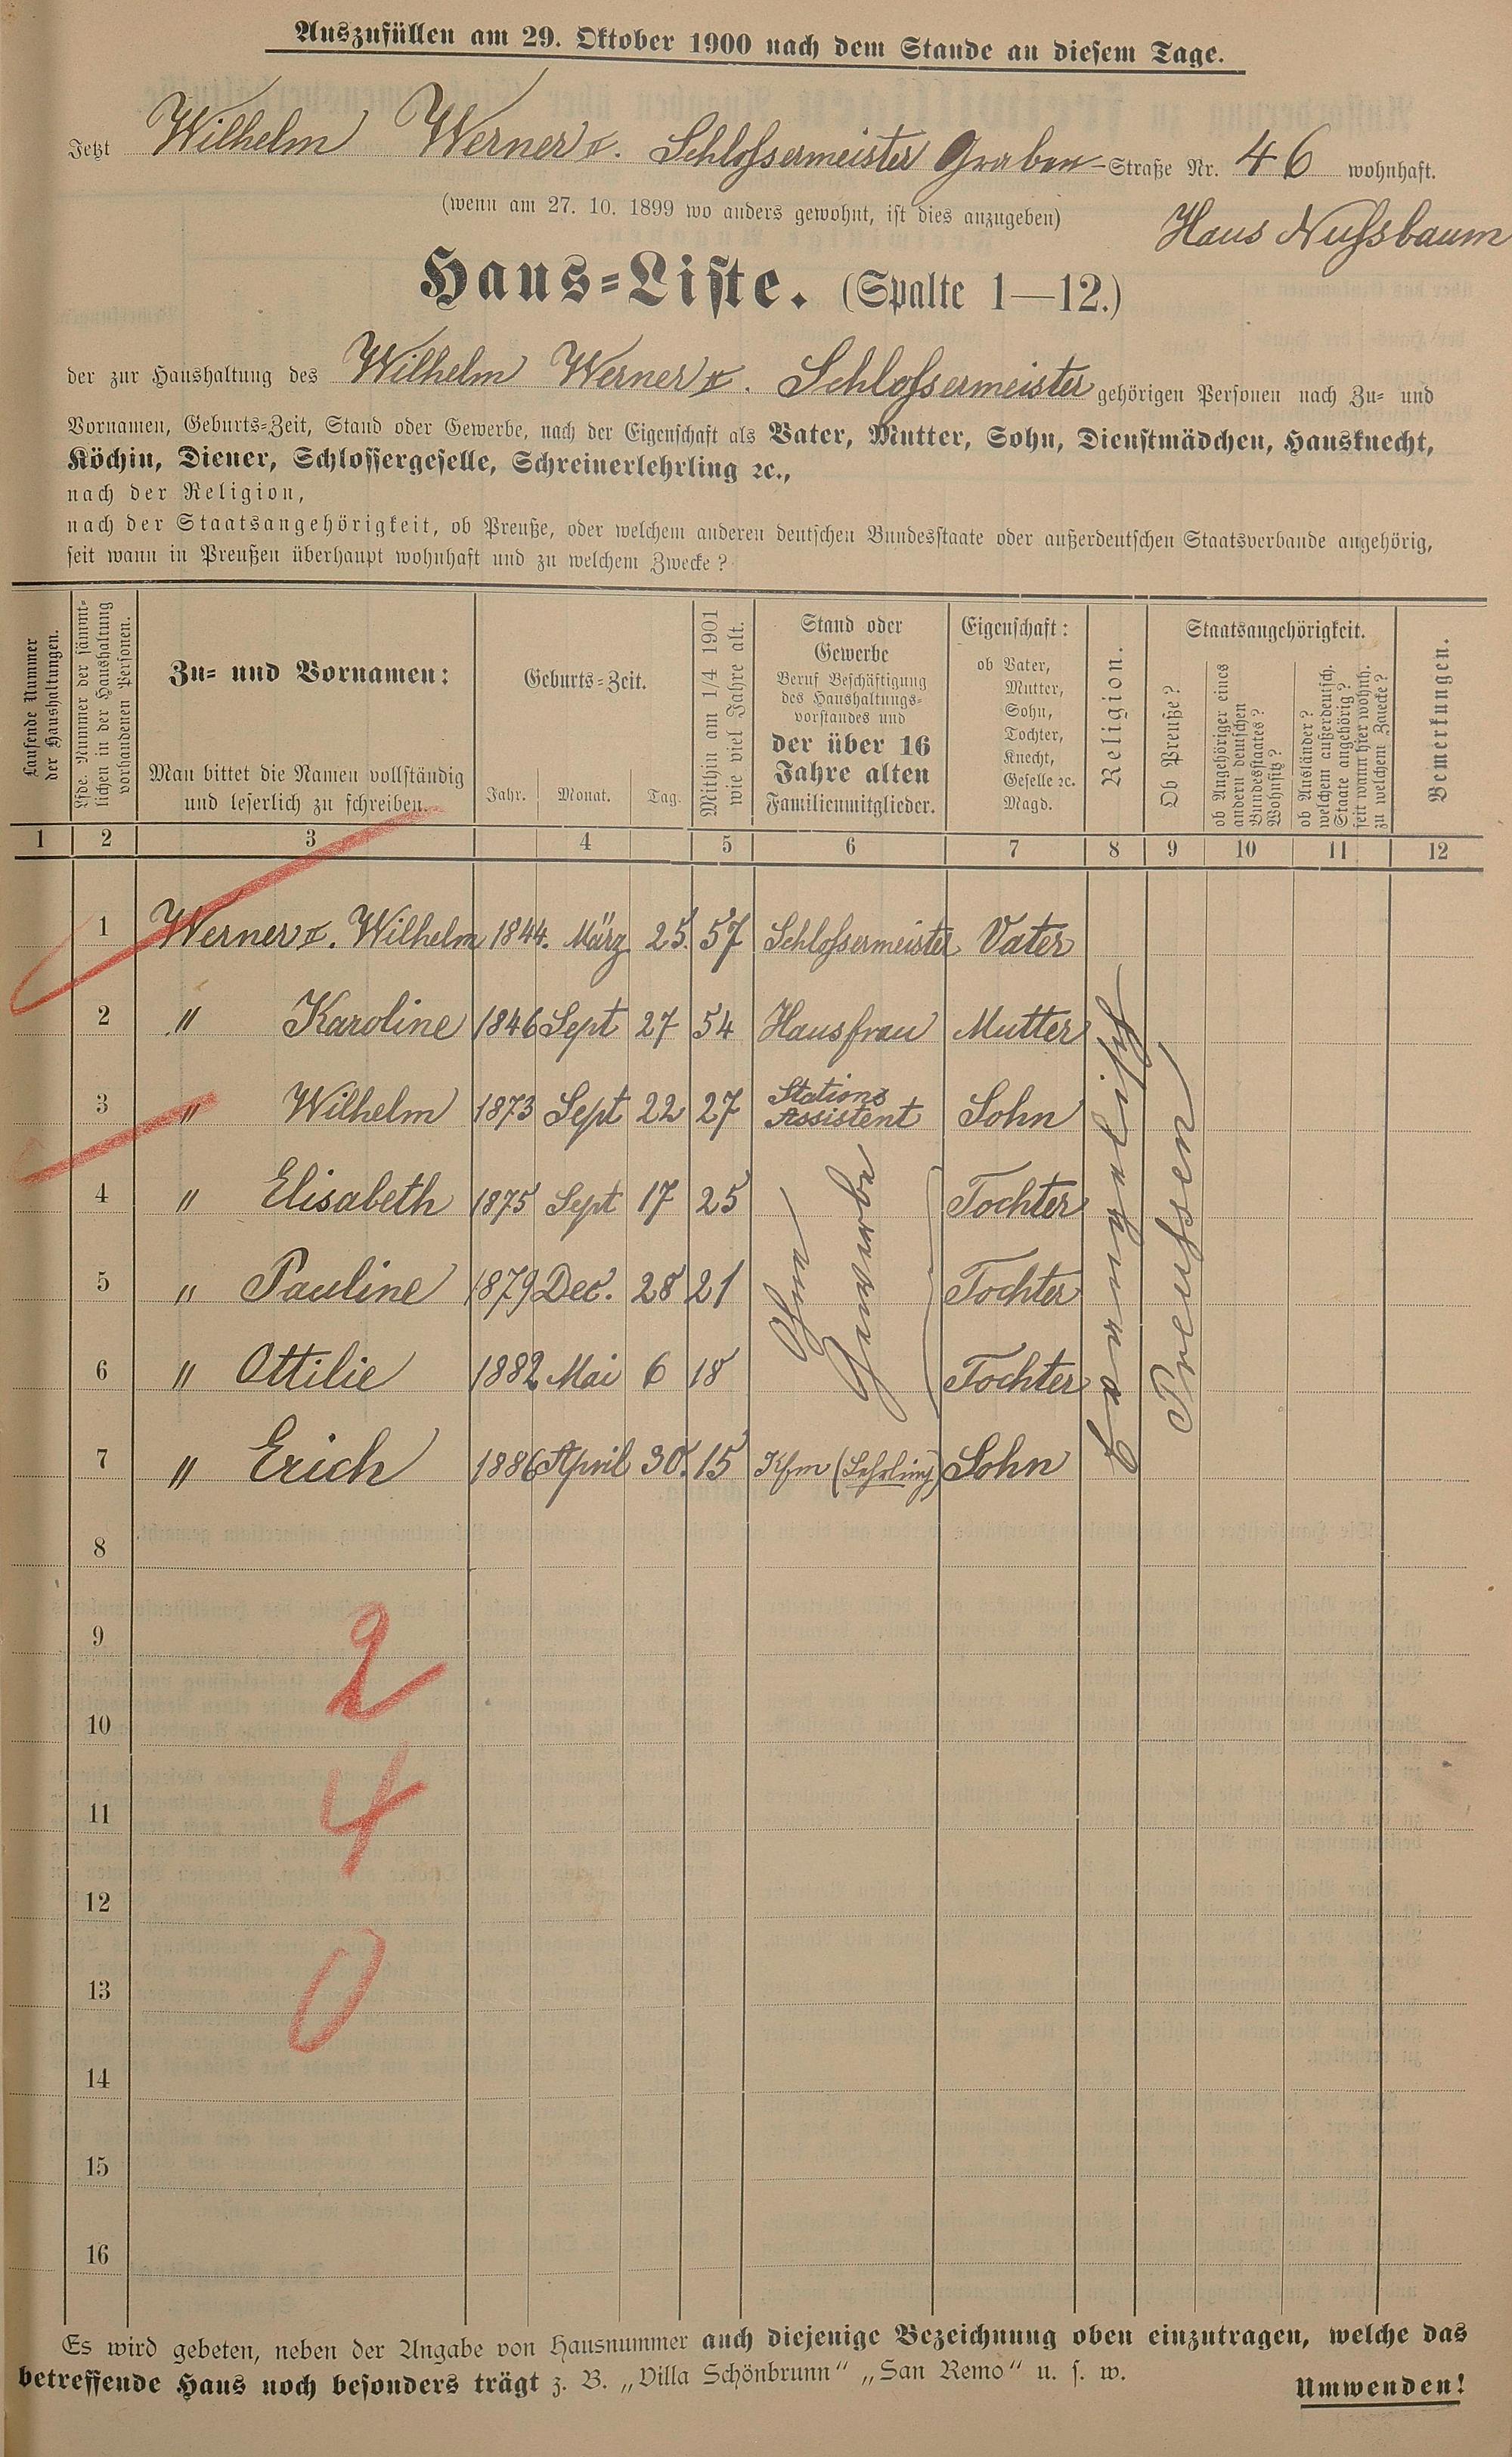 Auszufüllen am 29. Oktober 1900 nach dem Stande an diesem Tage.
Jetzt Wilhelm Werner II. Schloſsermeister Graben-Straße Nr. 46 wohnhaft.
(wenn am 27. 10. 1899 wo anders gewohnt, ist dies anzugeben)
Haus Nuſsbaum
Haus-Liste. (Spalte 1—12.)
der zur Haushaltung des Wilhelm Werner II. Schloſsermeister gehörigen Personen nach Zu- und
Vornamen, Geburts-Zeit, Stand oder Gewerbe, nach der Eigenschaft als Vater, Mutter, Sohn, Dienstmädchen, Hausknecht,
Köchin, Diener, Schlossergeselle, Schreinerlehrling ꝛc.,
nach der Religion,
nach der Staatsangehörigkeit, ob Preuße, oder welchem anderen deutschen Bundesstaate oder außerdeutschen Staatsverbande angehörig,
seit wann in Preußen überhaupt wohnhaft und zu welchem Zwecke?
Laufende Nummer
der Haushaltungen.
Lfde. Nummer der sämmt-
lichen in der Haushaltung
vorhandenen Personen.
Zu- und Vornamen:
Man bittet die Namen vollständig
und leserlich zu schreiben.
Geburts-Zeit.
Jahr. Monat. Tag.
Mithin am 1/4 1901
wie viel Jahre alt.
Stand oder
Gewerbe
Beruf Beschäftigung
des Haushaltungs-
vorstandes und
der über 16
Jahre alten
Familienmitglieder.
Eigenschaft:
ob Vater,
Mutter,
Sohn,
Tochter,
Knecht,
Geselle ꝛc.
Magd.
Religion.
Staatsangehörigkeit.
Ob Preuße?
ob Angehöriger eines
andern deutschen
Bundesstaates?
Wohnsitz?
ob Ausländer?
welchem außerdeutsch.
Staate angehörig?
seit wann hier wohnh.
zu welchem Zwecke?
Bemerkungen.
1 2 3 4 5 6 7 8 9 10 11 12
1 Werner II. Wilhelm 1844. März 25. 57 Schloſsermeister Vater
2 " Karoline 1846 Sept 27 54 Hausfrau Mutter
3 " Wilhelm 1873 Sept 22 27 Stations Assistent Sohn
4 " Elisabeth 1875 Sept 17 25 Tochter
5 " Pauline 1879 Dec. 28 21 Tochter
6 " Ottilie 1882 Mai 6 18 Tochter
7 " Erich 1886 April 30. 15 Kfm (Lehrling) Sohn
Ohne
Gewerbe
evangelisch
Preuſsen
8
9
10
11
12
13
14
15
16
2
4
0
Es wird gebeten, neben der Angabe von Hausnummer auch diejenige Bezeichnung oben einzutragen, welche das
betreffende Haus noch besonders trägt z. B. „Villa Schönbrunn“ „San Remo“ u. s. w.
Umwenden!